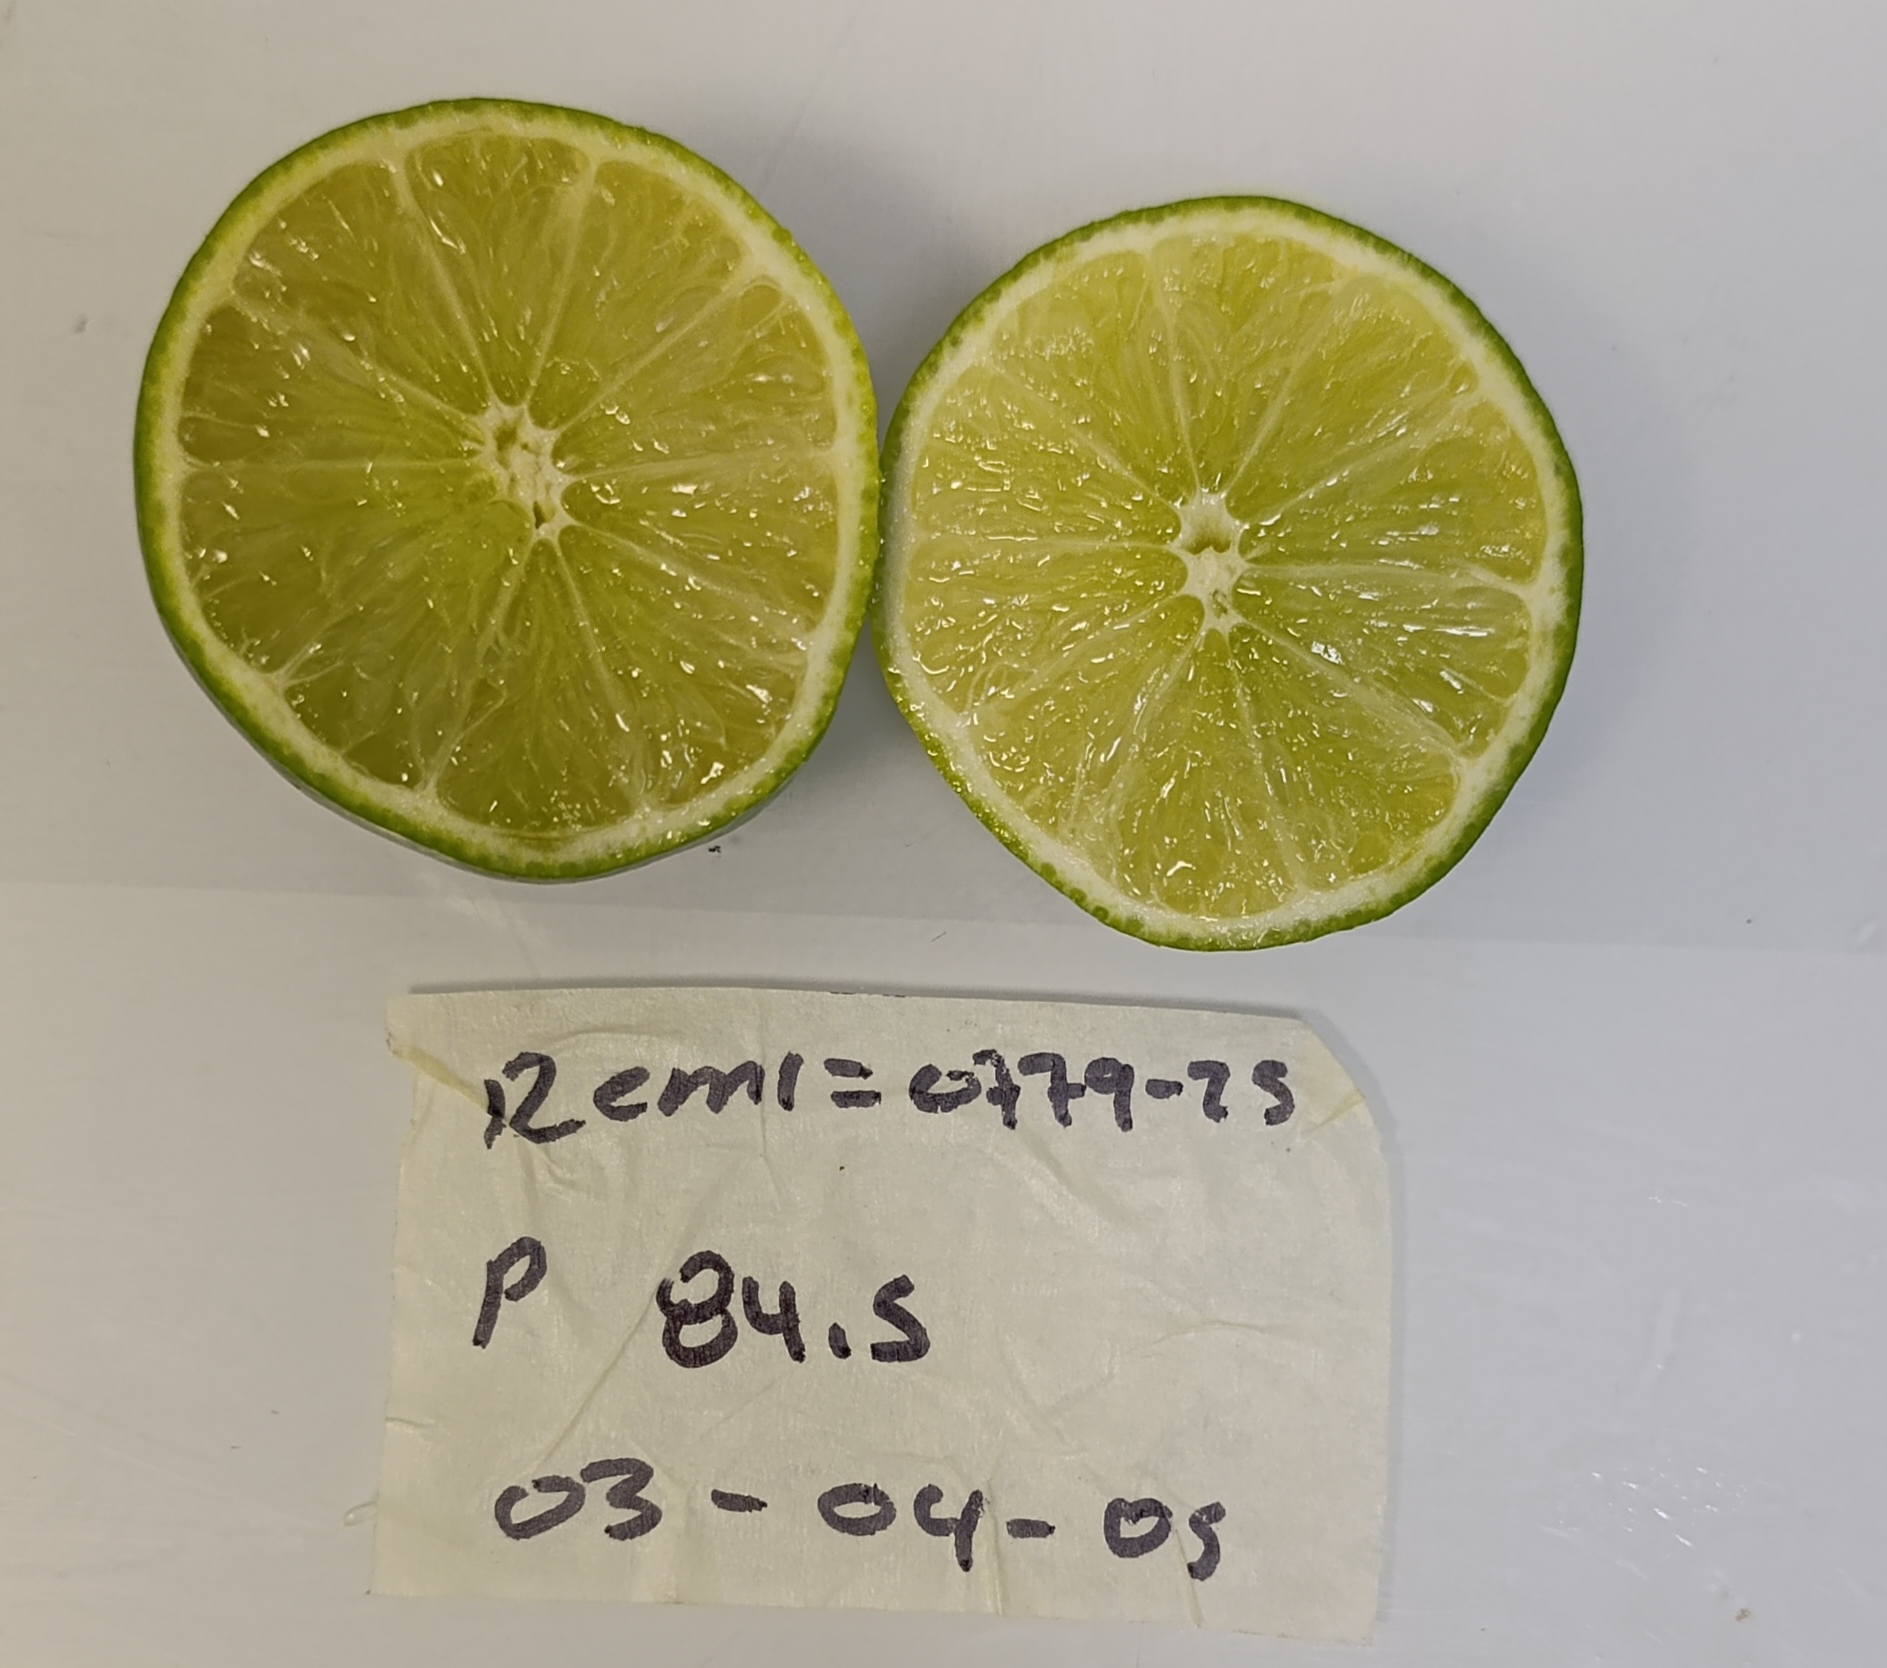 Remi=0779-25
P 84.5
03-04-05